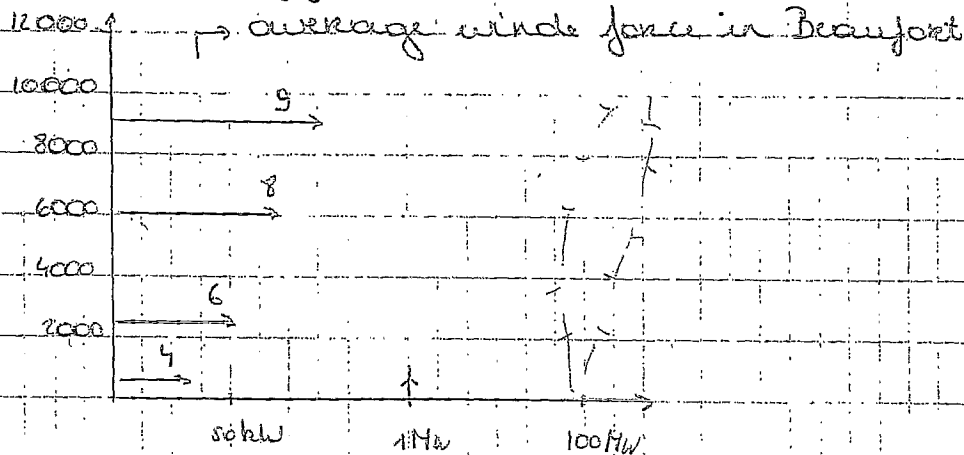 12000 → average winde force in Beaufort
10000
9
8000
8
6000
4000
6
2000
4
50kW 1MW 100MW